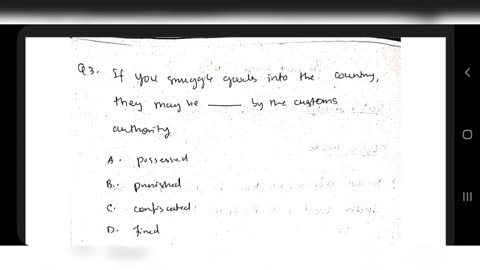 Q3. If you smuggle goods into the country,
they may be ____ by the customs
authority
A. possessed
B. punished
C. confiscated.
D. fined